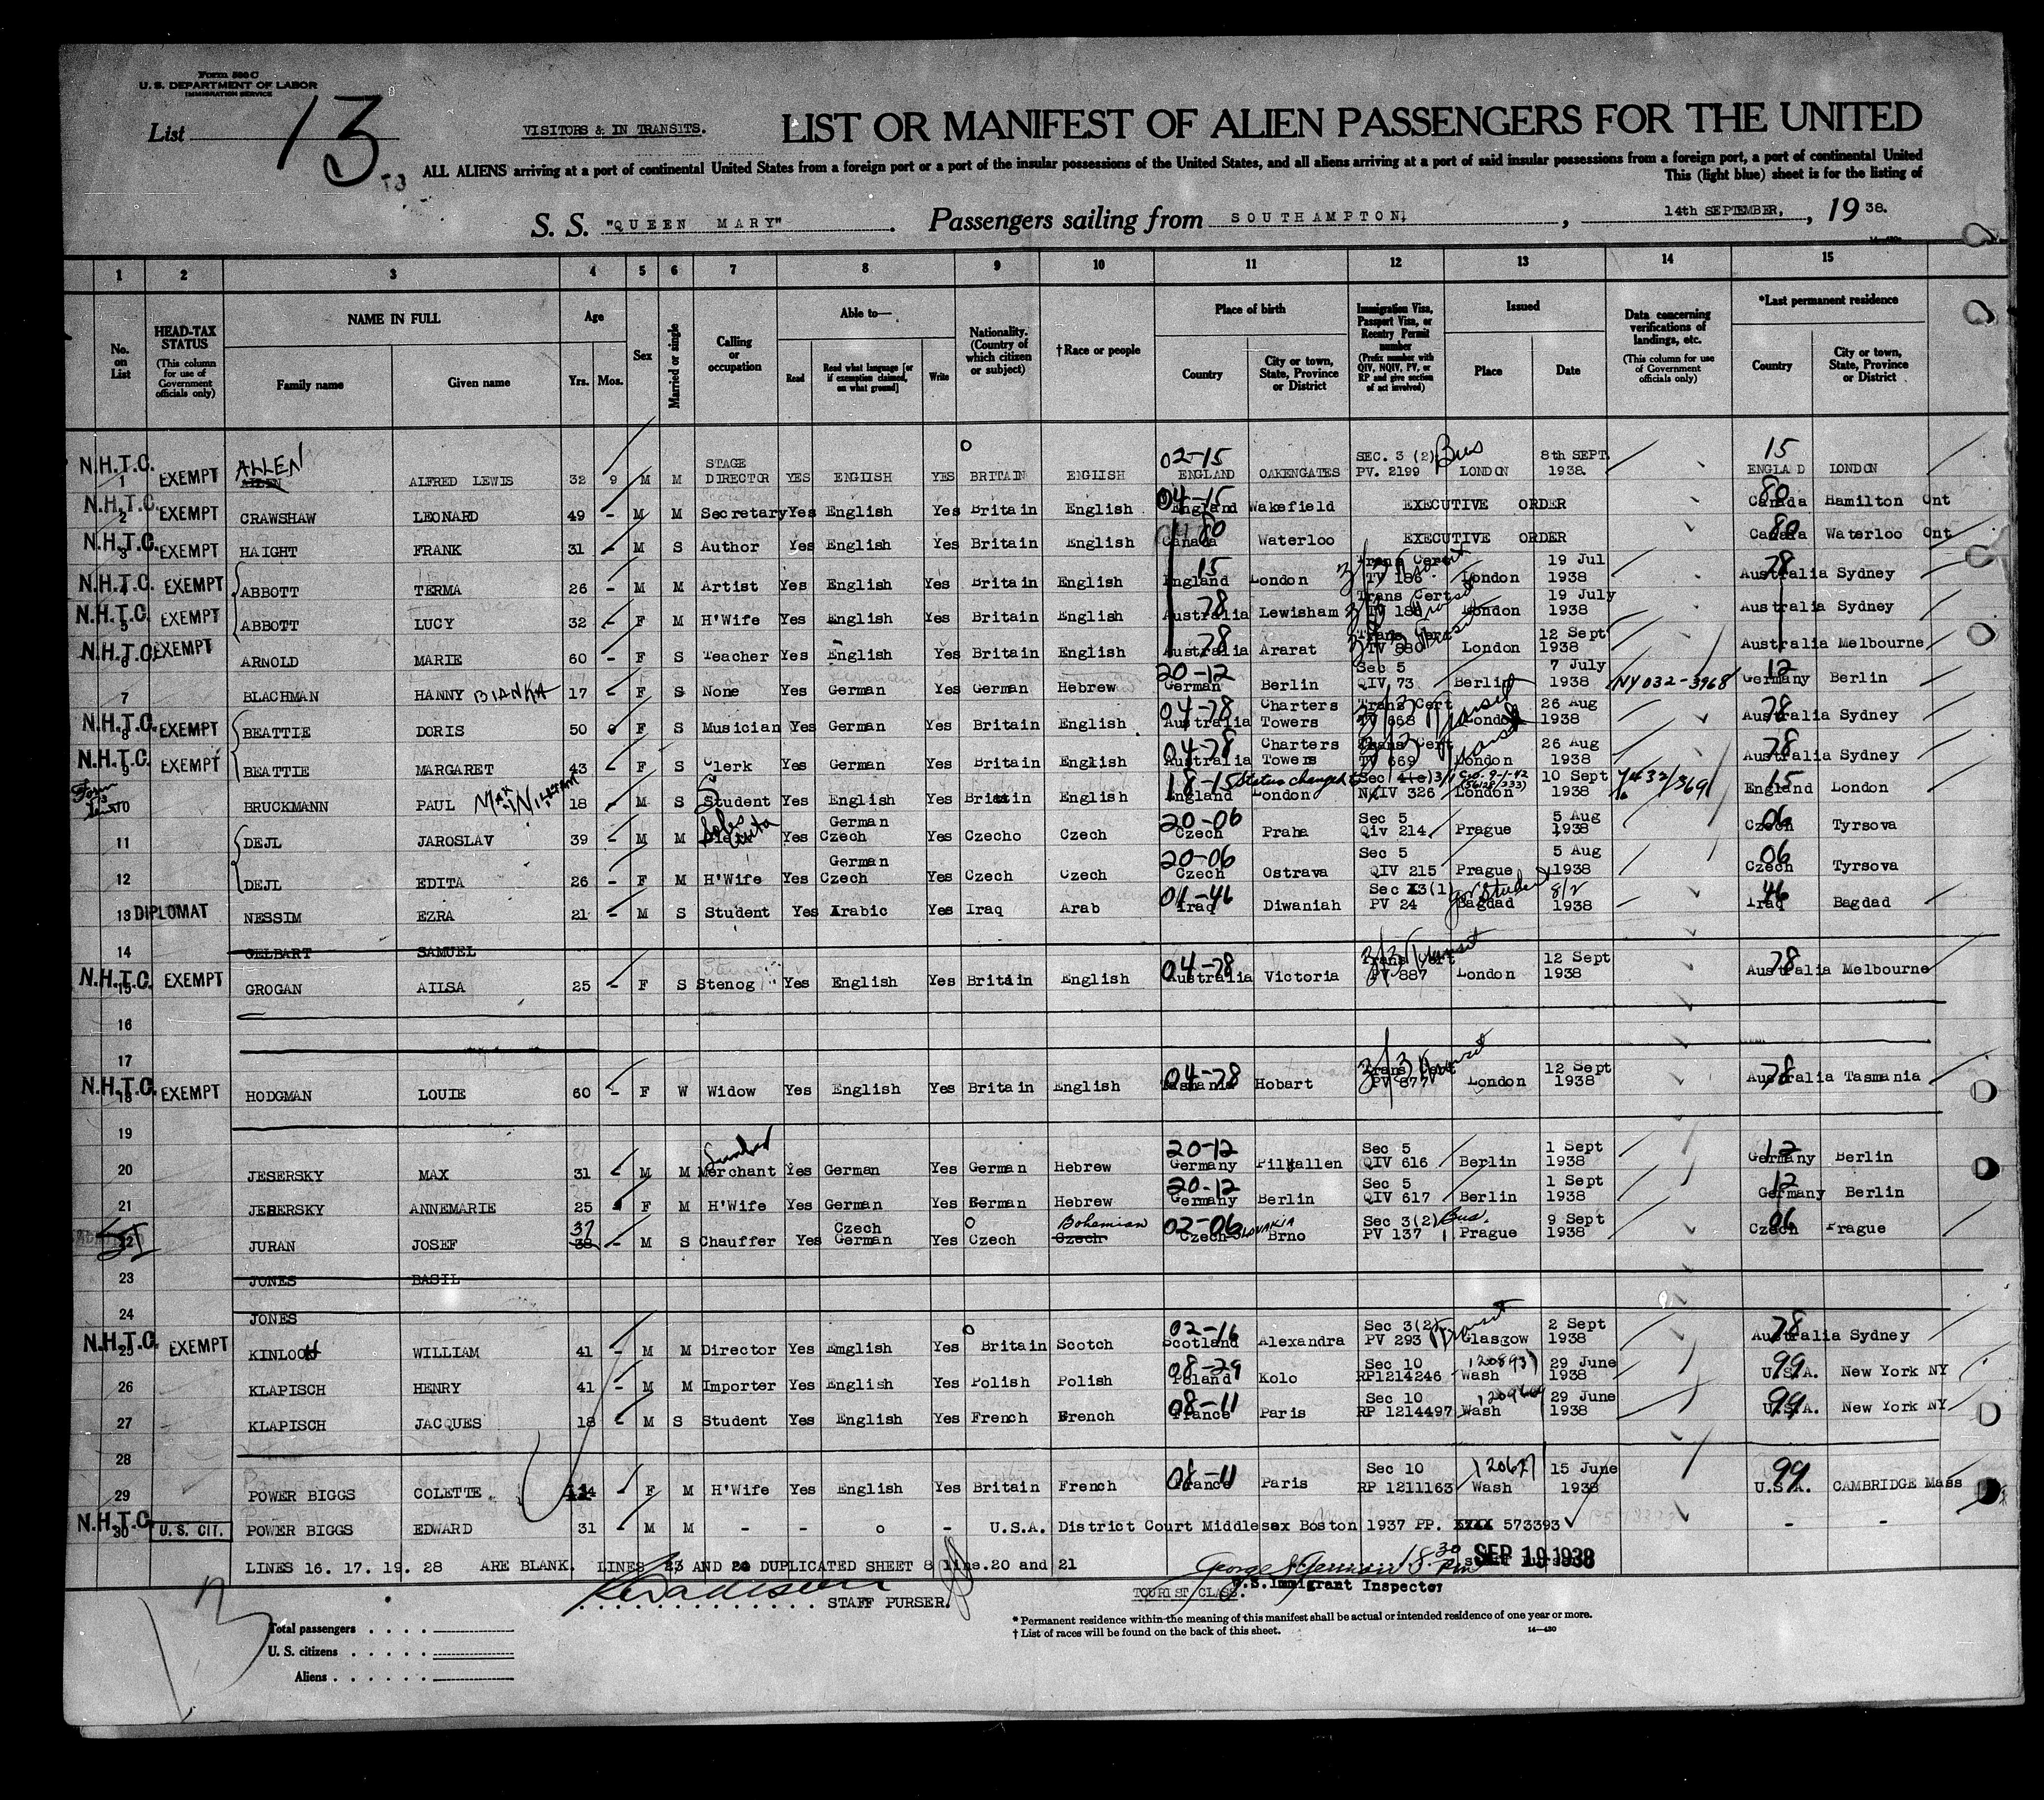 Form 500 C
U. S. DEPARTMENT OF LABOR
IMMIGRATION SERVICE
List 13
VISITORS & IN TRANSITS.
LIST OR MANIFEST OF ALIEN PASSENGERS FOR THE UNITED
ALL ALIENS arriving at a port of continental United States from a foreign port or a port of the insular possessions of the United States, and all aliens arriving at a port of said insular possessions from a foreign port, a port of continental United
This (light blue) sheet is for the listing of
S. S. "QUEEN MARY". Passengers sailing from SOUTHAMPTON, 14th SEPTEMBER, 1938.
1 2 3 4 5 6 7 8 9 10 11 12 13 14 15
No. on List
HEAD-TAX STATUS (This column for use of Government officials only)
NAME IN FULL
Family name Given name
Age Yrs. Mos.
Sex
Married or single
Calling or occupation
Able to—
Read Read what language [or if exemption claimed, on what ground] Write
Nationality. (Country of which citizen or subject)
†Race or people
Place of birth
Country City or town, State, Province or District
Immigration Visa, Passport Visa, or Reentry Permit number (Prefix number with QIV, NQIV, PV, or RP and give section of act involved)
Issued
Place Date
Data concerning verifications of landings, etc. (This column for use of Government officials only)
*Last permanent residence
Country City or town, State, Province or District
N.H.T.C. 1 EXEMPT ALLEN ALFRED LEWIS 32 9 M M STAGE DIRECTOR YES ENGLISH YES BRITAIN ENGLISH 02-15 ENGLAND OAKENGATES SEC. 3 (2) Bus PV. 2199 LONDON 8th SEPT. 1938. 15 ENGLAD LONDON
N.H.T.C. 2 EXEMPT CRAWSHAW LEONARD 49 - M M Secretary Yes English Yes Britain English 04-15 England Wakefield EXECUTIVE ORDER 80 Canada Hamilton Ont
N.H.T.C. 3 EXEMPT HAIGHT FRANK 31 - M S Author Yes English Yes Britain English 80 Canada Waterloo EXECUTIVE ORDER 80 Canada Waterloo Ont
N.H.T.C. 4 EXEMPT ABBOTT TERMA 26 - M M Artist Yes English Yes Britain English 15 England London Trans Cert 3/3 Transit TV 186 London 19 Jul 1938 78 Australia Sydney
N.H.T.C. 5 EXEMPT ABBOTT LUCY 32 - F M H'Wife Yes English Yes Britain English 78 Australia Lewisham Trans Cert 3/3 Transit TV 188 London 19 July 1938 Australia Sydney
N.H.T.C. 6 EXEMPT ARNOLD MARIE 60 - F S Teacher Yes English Yes Britain English 78 Australia Ararat Trans Cert 3/3 Transit TV 880 London 12 Sept 1938 Australia Melbourne
7 BLACHMAN HANNY BIANKA 17 - F S None Yes German Yes German Hebrew 20-12 German Berlin Sec 5 QIV 73 Berlin 7 July 1938 NY 032-3968 12 Germany Berlin
N.H.T.C. 8 EXEMPT BEATTIE DORIS 50 F S Musician Yes German Yes Britain English 04-78 Australia Charters Towers Trans Cert 3/3 Transit TV 668 London 26 Aug 1938 78 Australia Sydney
N.H.T.C. 9 EXEMPT BEATTIE MARGARET 43 - F S Clerk Yes German Yes Britain English 04-78 Australia Charters Towers Trans Cert 3/3 Transit TV 669 London 26 Aug 1938 78 Australia Sydney
10 BRUCKMANN PAUL 18 - M S Student Yes English Yes Britain 18-15 England London Status changed to Sec 4(e) 3/1 NQIV 326 London 10 Sept 1938 15 England London
11 DEJL JAROSLAV 39 - M M Yes German Czech Yes Czecho Czech 20-06 Czech Praha Sec 5 Qiv 214 Prague 5 Aug 1938 06 Czech Tyrsova
12 DEJL EDITA 26 - F M H'Wife Yes German Czech Yes Czech Czech 20-06 Czech Ostrava Sec 5 QIV 215 Prague 5 Aug 1938 06 Czech Tyrsova
13 DIPLOMAT NESSIM EZRA 21 - M S Student Yes Arabic Yes Iraq Arab 01-46 Iraq Diwaniah Sec 3(1) PV 24 Gov Student Bagdad 8/2 1938 46 Iraq Bagdad
14 GELBART SAMUEL
N.H.T.C. 15 EXEMPT GROGAN AILSA 25 - F S Stenog Yes English Yes Britain English 04-78 Australia Victoria 3/3 Transit Trans Cert PV 887 London 12 Sept 1938 78 Australia Melbourne
16
17
N.H.T.C. 18 EXEMPT HODGMAN LOUIE 60 - F W Widow Yes English Yes Britain English 04-78 Tasmania Hobart 3/3 Transit Trans Cert PV 877 London 12 Sept 1938 78 Australia Tasmania
19
20 JESERSKY MAX 31 - M M Merchant Yes German Yes German Hebrew 20-12 Germany Pilkallen Sec 5 QIV 616 Berlin 1 Sept 1938 12 Germany Berlin
21 JESERSKY ANNEMARIE 25 F M H'Wife Yes German Yes German Hebrew 20-12 Germany Berlin Sec 5 QIV 617 Berlin 1 Sept 1938 12 Germany Berlin
22 JURAN JOSEF 37 38 - M S Chauffer Yes Czech German Yes Czech Bohemian Czech 02-06 Czech SLOVAKIA Brno Sec 3(2) Bus. PV 137 Prague 9 Sept 1938 06 Czech Prague
23 JONES BASIL
24 JONES
N.H.T.C. 25 EXEMPT KINLOCH WILLIAM 41 - M M Director Yes Emglish Yes Britain Scotch 02-16 Scotland Alexandra Sec 3(2) Transit PV 293 Glasgow 2 Sept 1938 78 Australia Sydney
26 KLAPISCH HENRY 41 - M M Importer Yes English Yes Polish Polish 08-29 Poland Kolo Sec 10 RP1214246 Wash 29 June 1938 99 U.S.A. New York NY
27 KLAPISCH JACQUES 18 - M S Student Yes English Yes French French 08-11 France Paris Sec 10 RP 1214497 Wash 29 June 1938 99 U.S.A. New York NY
28
29 POWER BIGGS COLETTE F M H'Wife Yes English Yes Britain French 08-11 France Paris Sec 10 RP 1211163 Wash 15 June 1938 99 U.S.A. CAMBRIDGE Mass
N.H.T.C. 30 U.S. CIT. POWER BIGGS EDWARD 31 - M M - - o - U.S.A. District Court Middlesex Boston 1937 PP. XXXX 573393 - -
LINES 16. 17. 19. 28 ARE BLANK. LINES 23 AND 24 DUPLICATED SHEET 8 line.20 and 21
SEP 19 1938
STAFF PURSER.
TOURIST CLASS. U.S. Immigrant Inspector
Total passengers
U. S. citizens
Aliens
* Permanent residence within the meaning of this manifest shall be actual or intended residence of one year or more.
† List of races will be found on the back of this sheet.
14—430